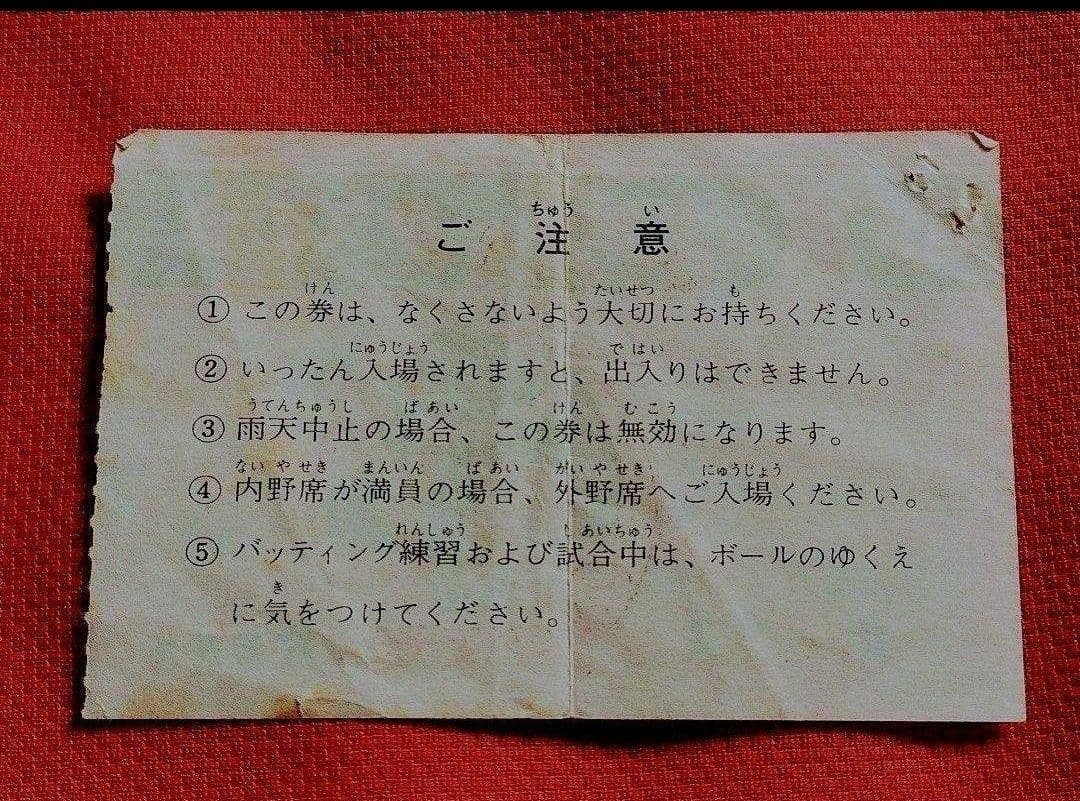 ちゅう い
ご 注 意
けん たいせつ も
① この券は、なくさないよう大切にお持ちください。
にゅうじょう で はい
② いったん入場されますと、出入りはできません。
うてんちゅうし ばあい けん むこう
③ 雨天中止の場合、この券は無効になります。
ない や せき まんいん ばあい がい や せき にゅうじょう
④ 内野席が満員の場合、外野席へご入場ください。
れんしゅう し あいちゅう
⑤ バッティング練習および試合中は、ボールのゆくえ
き
に気をつけてください。